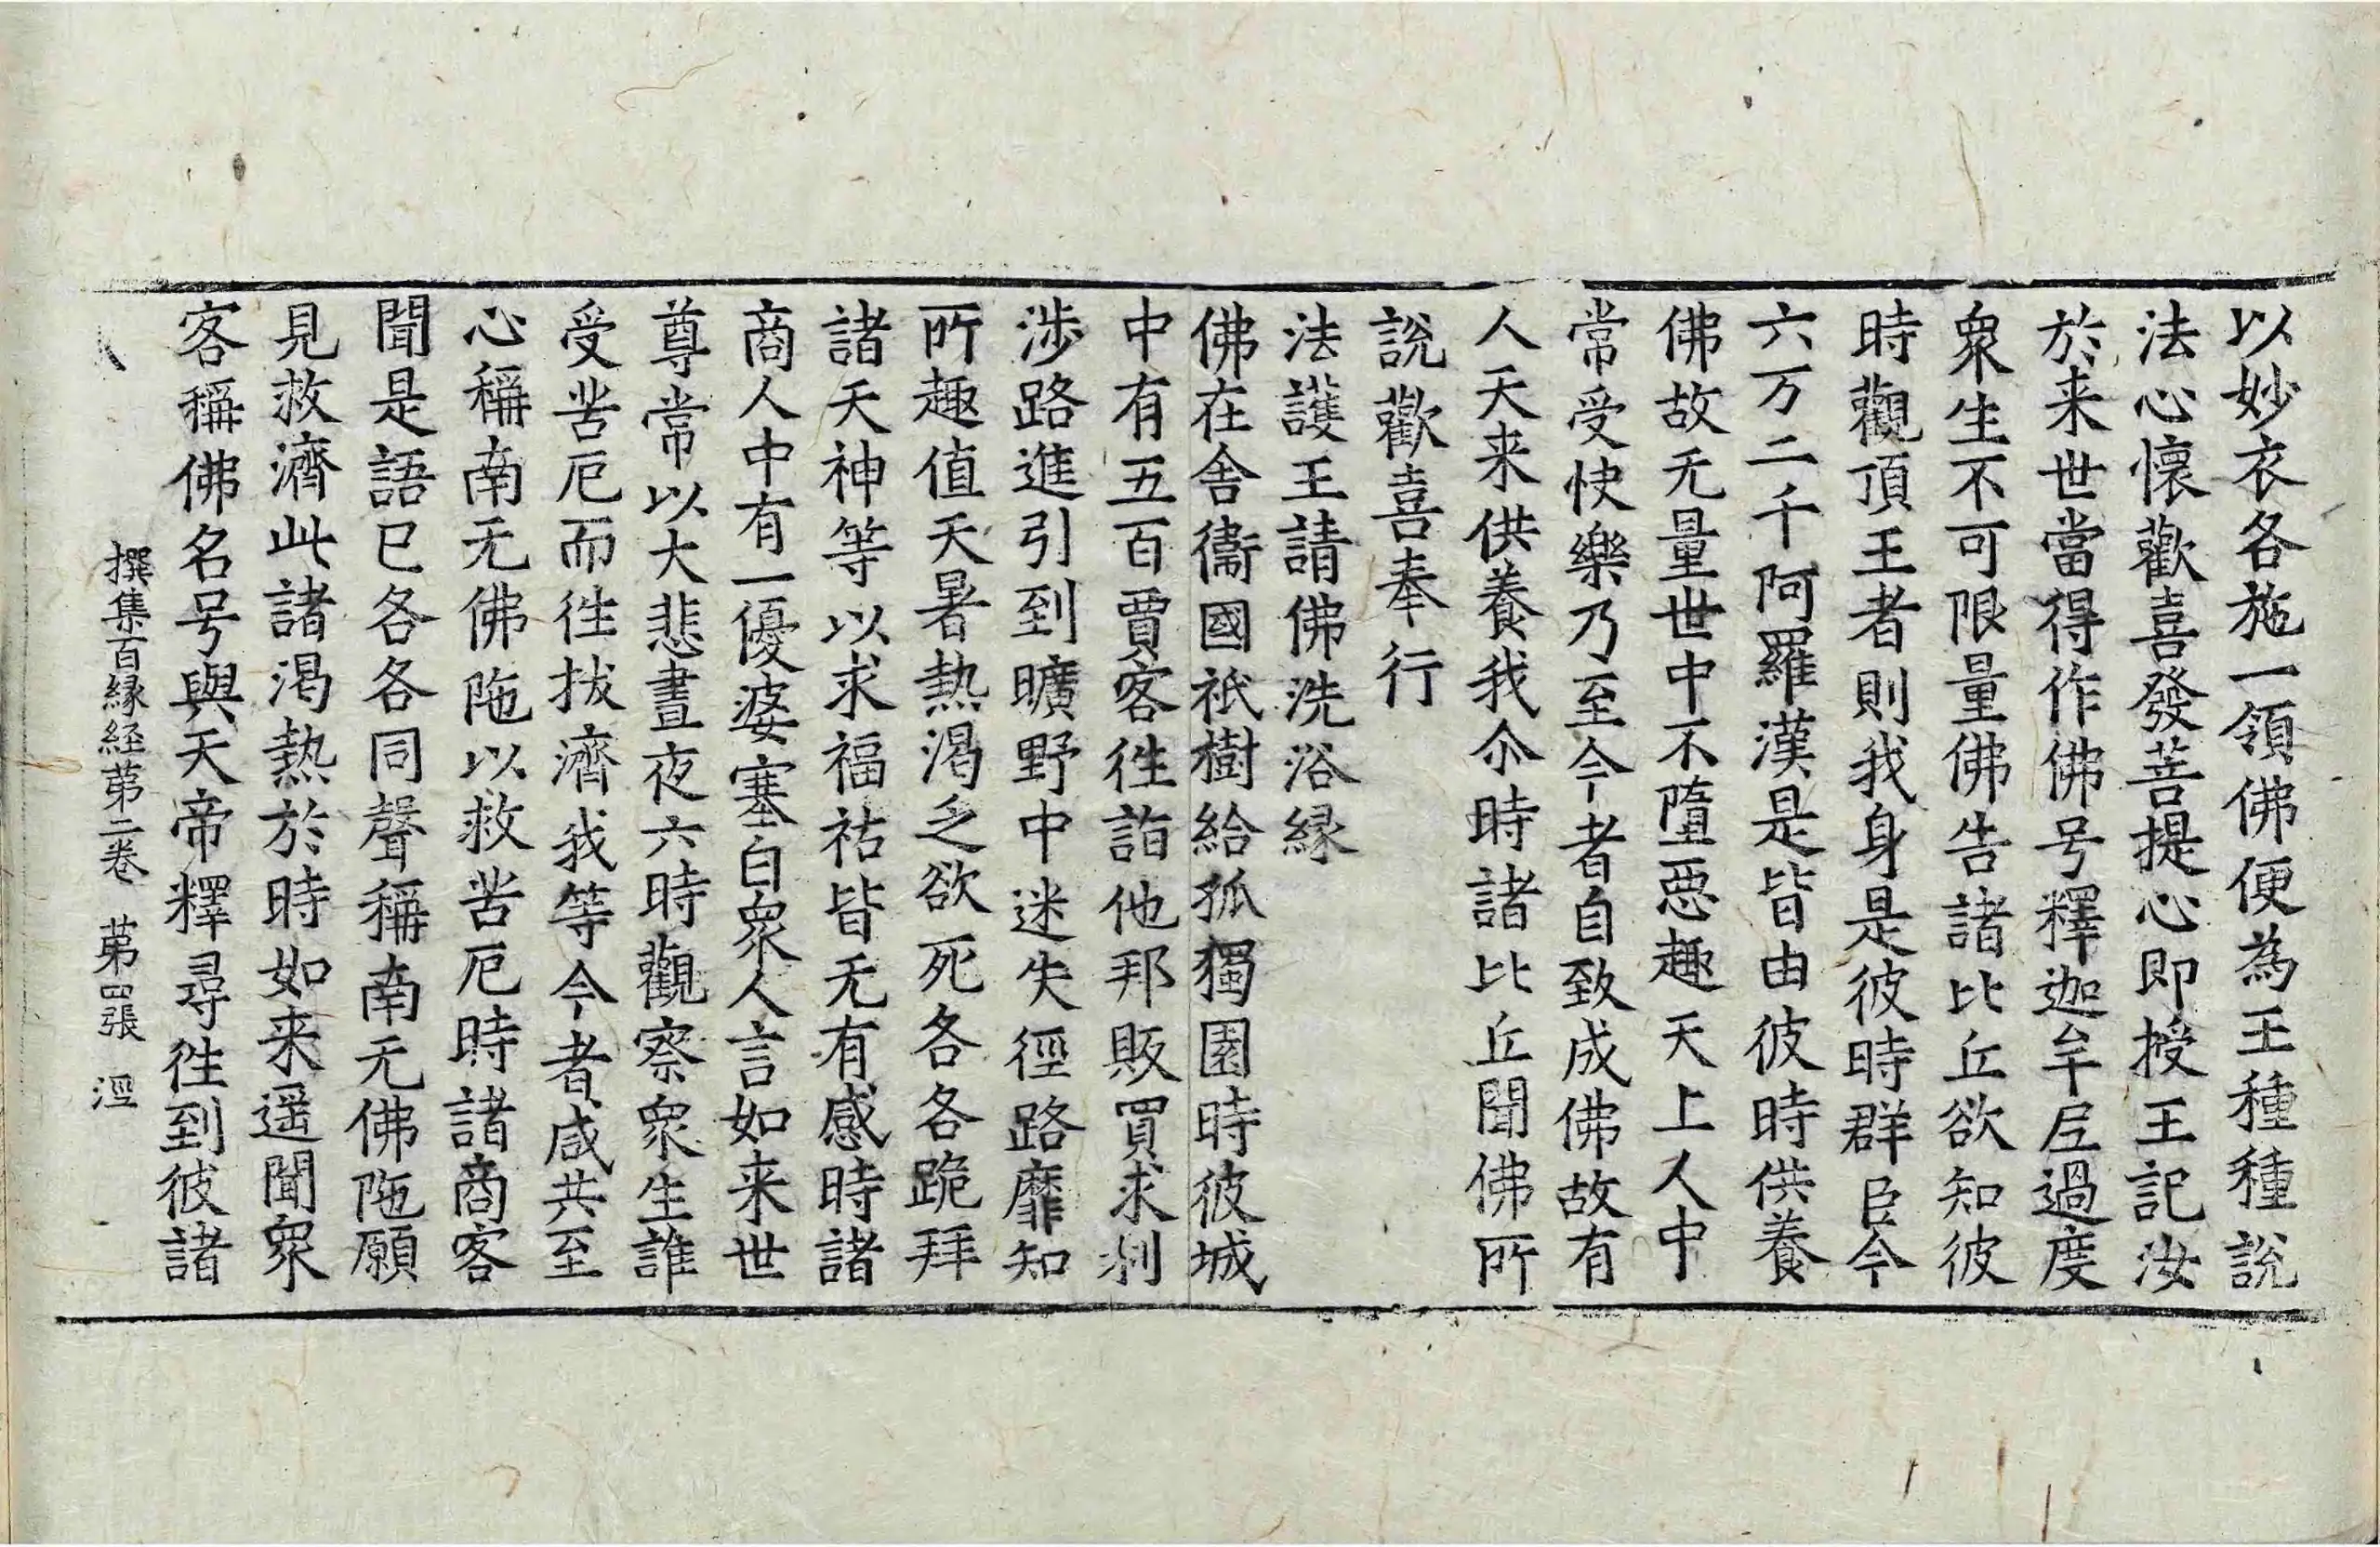 以妙衣各施一領佛便為王種種說
法心懷歡喜發菩提心即授王記汝
於来世當得作佛号釋迦牟𡰱過度
衆生不可限量佛告諸比丘欲知彼
時觀頂王者則我身是彼時群臣今
六万二千阿羅漢是皆由彼時供養
佛故无量世中不墮惡趣天上人中
常受快樂乃至今者自致成佛故有
人天来供養我尒時諸比丘聞佛所
說歡喜奉行
法護王請佛洗浴縁
佛在舍衞國祇樹給孤獨園時彼城
中有五百賈客徃詣他邦販買求利
渉路進引到曠野中迷失徑路靡知
所趣值天暑熱渴乏欲死各各跪拜
諸天神等以求福祐皆无有感時諸
商人中有一優婆塞白衆人言如来世
尊常以大悲晝夜六時觀察衆生誰
受苦厄而徃拔濟我等今者咸共至
心稱南无佛陁以救苦厄時諸商客
聞是語已各各同聲稱南无佛陁願
見救濟此諸渴熱於時如来遥聞衆
客稱佛名号與天帝釋尋徃到彼諸
撰集百縁経苐二卷 苐四張 涇